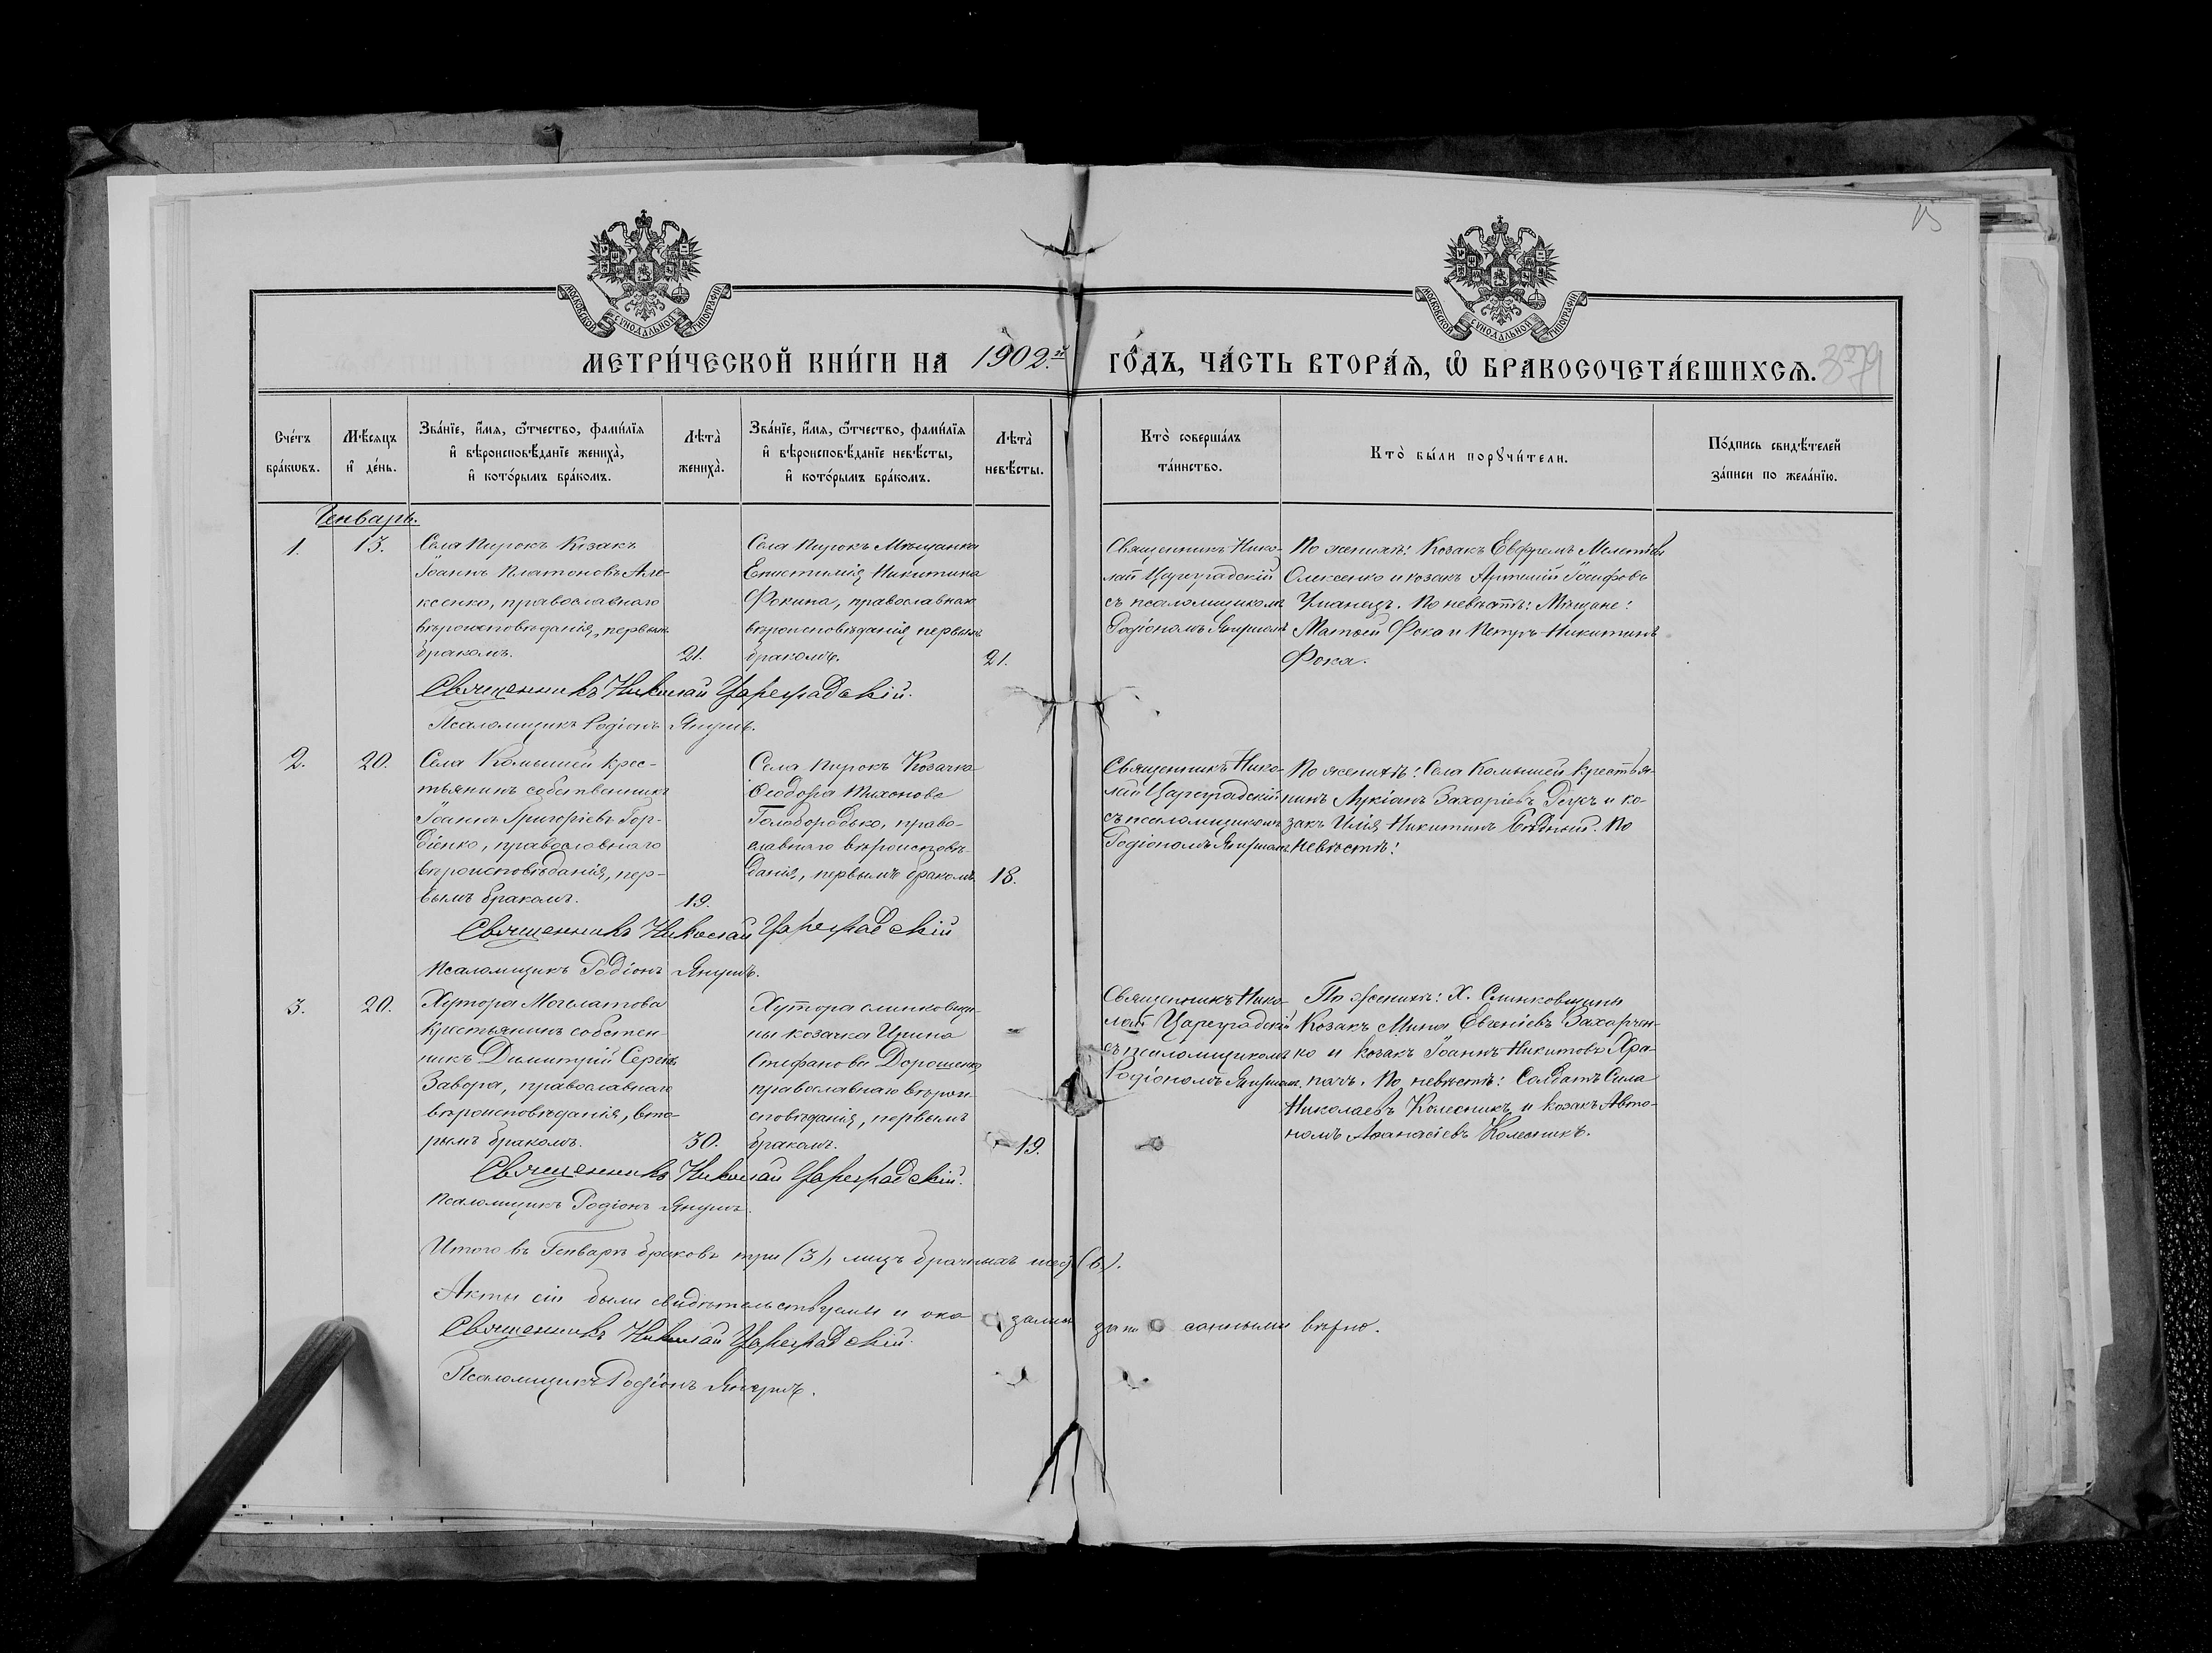 15
МОСКОВСКОЙ СУНОДАЛЬНОЙ ТИПОГРАФІИ
МОСКОВСКОЙ СУНОДАЛЬНОЙ ТИПОГРАФІИ
МЕТРИ́ЧЕСКОЙ КНИ́ГИ НА 1902.й ГО́ДЪ, ЧА́СТЬ ВТОРА́Ѧ, Ѡ БРАКОСОЧЕТА́ВШИХСѦ.
379
Сче́тъ бра́кѡвъ.
Мѣ́сяцъ и де́нь.
Зва́нїе, и́мѧ, ѻ́тчество, фами́лїѧ
и вѣроисповѣ́данїе жениха̀,
и кото́рымъ бра́комъ.
Лѣта̀ жениха̀.
Зва́нїе, и́мѧ, ѻ́тчество, фами́лїѧ
и вѣроисповѣ́данїе невѣ́сты,
и кото́рымъ бра́комъ.
Лѣта̀ невѣ́сты.
Кто̀ соверша́лъ
та́инство.
Кто̀ бы́ли порꙋчи́тели.
По́дпись свидѣ́телей
за́писи по жела́нїю.
Генварь.
1.
13.
Села Пирокъ Козакъ
Іоаннъ Платоновъ Але-
ксенко, православнаго
вѣроисповѣданія, первымъ
бракомъ.
21.
Села Пирокъ Мѣщанка
Епистимія Никитина
Фокина, православнаго
вѣроисповѣданія первымъ
бракомъ.
21.
Священникъ Нико-
лай Цареградскій
съ псаломщикомъ
Родіономъ
По женихѣ: Козакъ Евфремъ Мелетіевъ
Олексенко и козакъ Артемій Іосифовъ
Уманецъ. По невѣстѣ: Мѣщане:
Матѳей Фока и Петръ Никитинъ
Фока.
Священникъ Николай Цареградскій.
Псаломщикъ Родіонъ
2.
20.
Села Комышей крес-
тьянинъ собственникъ
Іоаннъ Григоріевъ Гор-
діенко, православнаго
вѣроисповѣданія, пер-
вымъ бракомъ.
19.
Села Пирокъ Козачка
Ѳеодора Тихонова
Голобородько, право-
славнаго вѣроисповѣ-
данія, первымъ бракомъ
18.
Священникъ Нико-
лай Цареградскій
съ псаломщикомъ
Родіономъ
По женихѣ: Села Комышей крестья-
нинъ Лукіанъ Захаріевъ и ко-
закъ Илія Никитинъ Бѣдный. По
невѣстѣ:
Священникъ Николай Цареградскій
Псаломщикъ Родіонъ
3.
20.
Хутора
крестьянинъ собствен-
никъ Димитрій
Завора, православнаго
вѣроисповѣданія, вто-
рымъ бракомъ.
30.
Хутора Слинковщи-
ны козачка Ирина
Стефанова Дорошенко
православнаго вѣрои-
сповѣданія, первымъ
бракомъ.
19.
Священникъ Нико-
лай Цареградскій
съ псаломщикомъ
Родіономъ
По женихѣ: Х. Слинковщины
Козакъ Мина Евгеніевъ Захарчен-
ко и козакъ Іоаннъ Никитовъ Хра-
пачъ. По невѣстѣ: Солдатъ Сила
Николаевъ Колесникъ и козакъ Авто-
номъ Аѳанасіевъ Колесникъ.
Священникъ Николай Цареградскій.
Псаломщикъ Родіонъ
Итого въ Генварѣ браковъ три (3), лицъ брачныхъ (6).
Акты сіи были свидѣтельствуемы и оказались записанными вѣрно.
Священникъ Николай Цареградскій.
Псаломщикъ Родіонъ